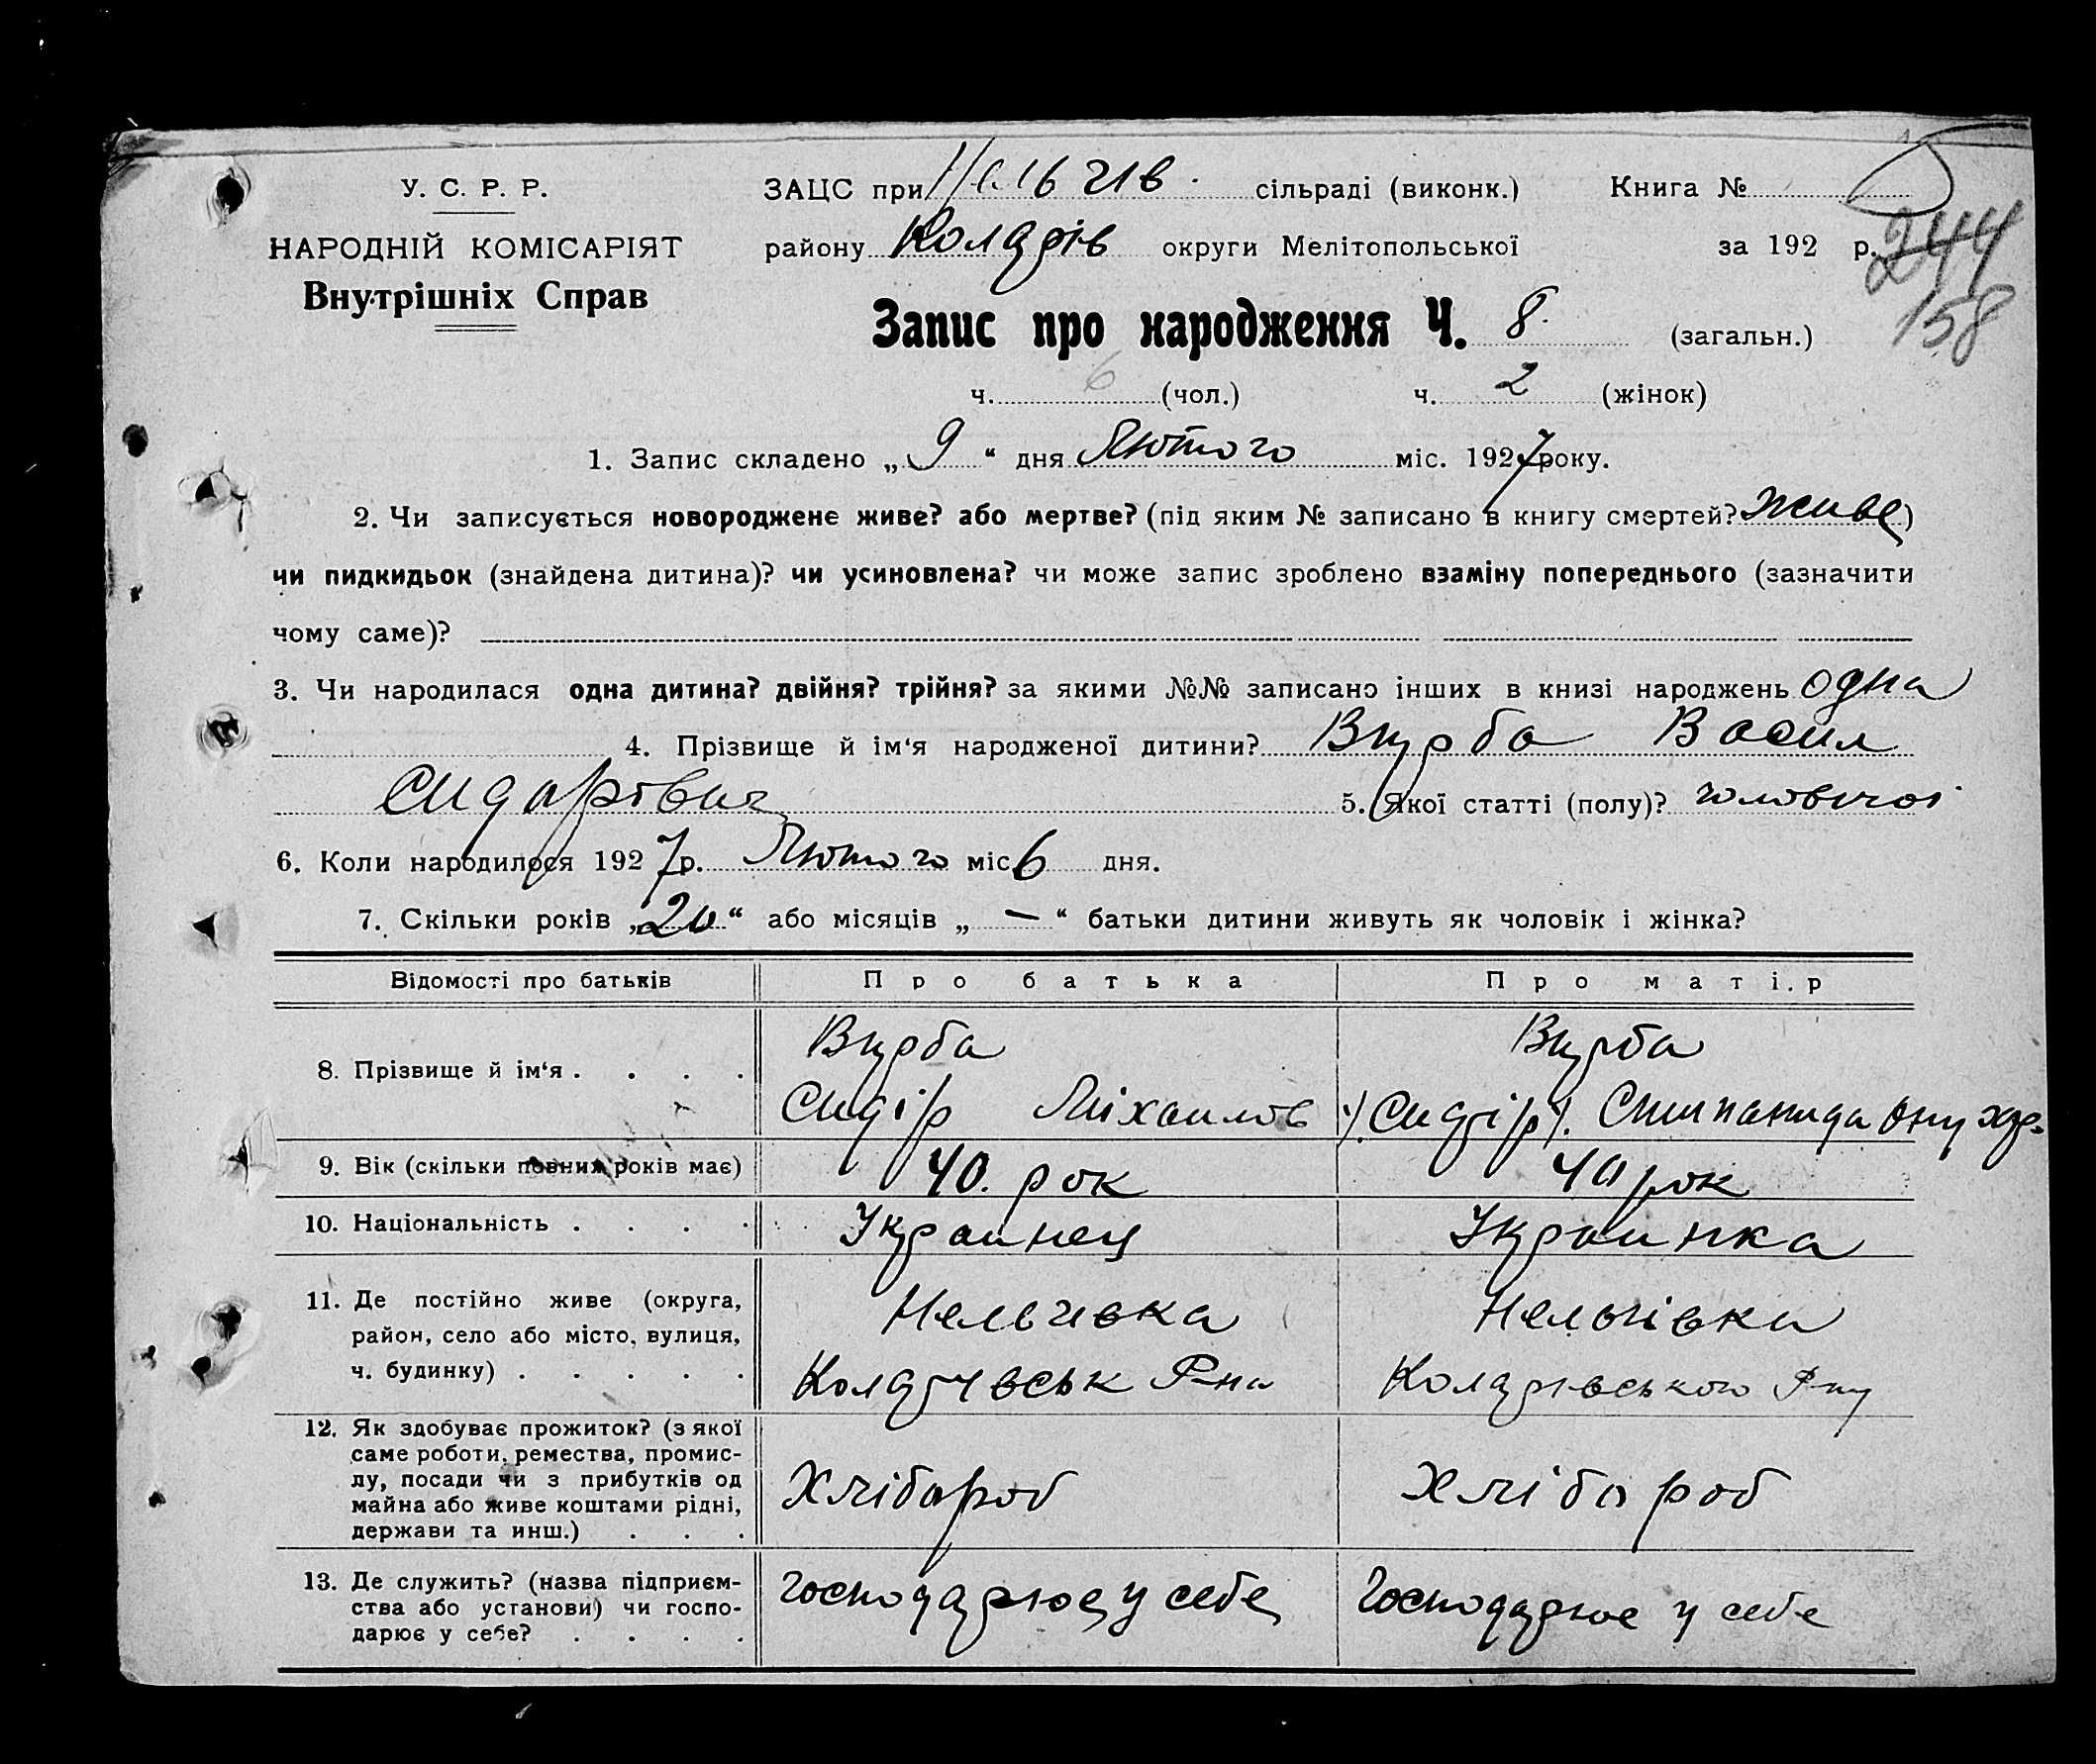 У. С. Р. Р.
НАРОДНІЙ КОМІСАРІЯТ
Внутрішніх Справ
ЗАЦС при Нельгів. сільраді (виконк.) Книга №
району Коларів округи Мелітопольської за 192 р.
244
158
Запис про народження Ч. 8. (загальн.)
ч. 6 (чол.) ч. 2 (жінок)
1. Запис складено „ 9 “ дня Лютого міс. 1927 року.
2. Чи записується новороджене живе? або мертве? (під яким № записано в книгу смертей? живе)
чи пидкидьок (знайдена дитина)? чи усиновлена? чи може запис зроблено взаміну попереднього (зазначити
чому саме)?
3. Чи народилася одна дитина? двійня? трійня? за якими №№ записано інших в книзі народжень одна
4. Прізвище й ім‘я народженої дитини? Вурба Васил
Сидорівич 5. Якої статті (полу)? чоловічої
6. Коли народилося 1927 р. Лютого міс 6 дня.
7. Скільки років „20“ або місяців „ — “ батьки дитини живуть як чоловік і жінка?
Відомості про батьків Про батька Про маті.р
8. Прізвище й ім‘я . . . . Вурба Вурба
Сидір Міхаилов Сидір
9. Вік (скільки повних років має) 40. рок 40 рок
10. Національність . . . . Украинец Украинка
11. Де постійно живе (округа, район, село або місто, вулиця, ч. будинку) . . . . . Нельгивка Нельгівка
Коларівськ Р-на Коларівського Р-ну
12. Як здобуває прожиток? (з якої
саме роботи, ремества, промис-
лу, посади чи з прибутків од
майна або живе коштами рідні,
держави та инш.) . . . Хлібороб Хлібороб
13. Де служить? (назва підприєм-
ства або установи) чи госпо-
дарює у себе? . . . . Господарює у себе Господарює у себе